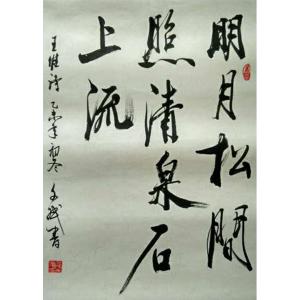 明月松間
照清泉石
上流
王維詩乙未年初冬
書